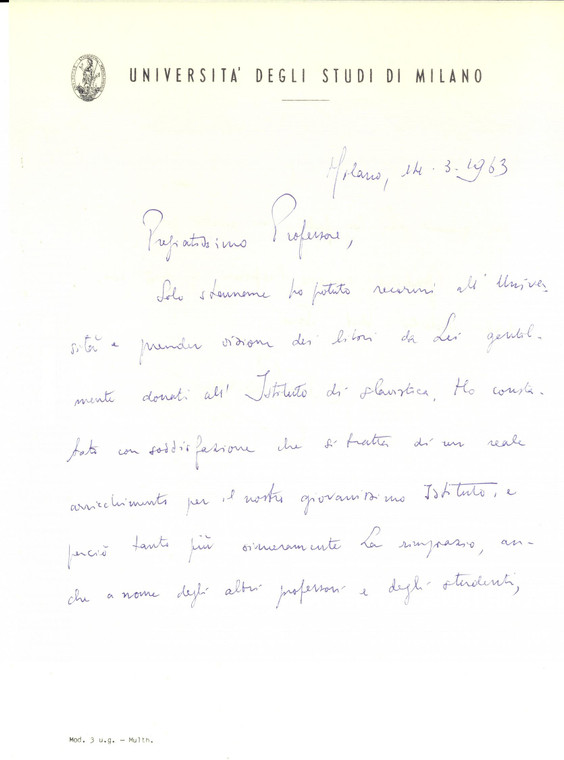 UNIVERSITA' DEGLI STUDI DI MILANO
Milano, 14.3.1963
Pregiatissimo Professore,
Solo stamane ho potuto recarmi all'Univer-
sità e prender visione dei libri da Lei gentil-
mente donati all'Istituto di slavistica. Ho consta-
tato con soddisfazione che si tratta di un reale
arricchimento per il nostro giovanissimo Istituto, e
perciò tanto più sinceramente La ringrazio, an-
che a nome degli altri professori e degli studenti,
Mod. 3 u.g. - Multh.